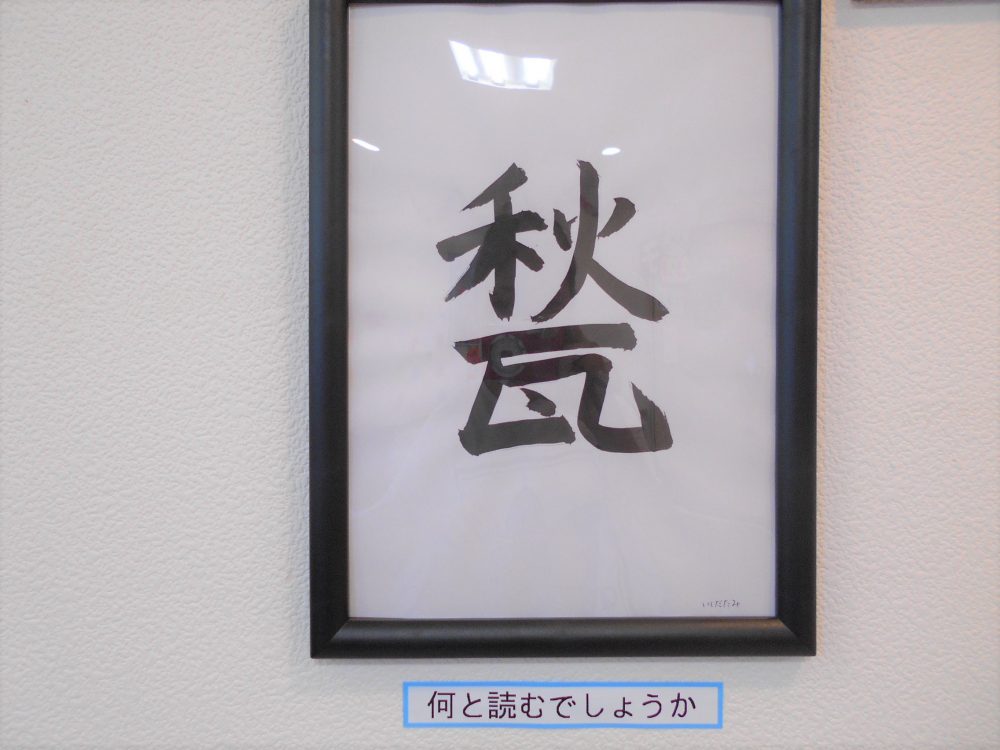 甃
いしだたみ
何と読むでしょうか